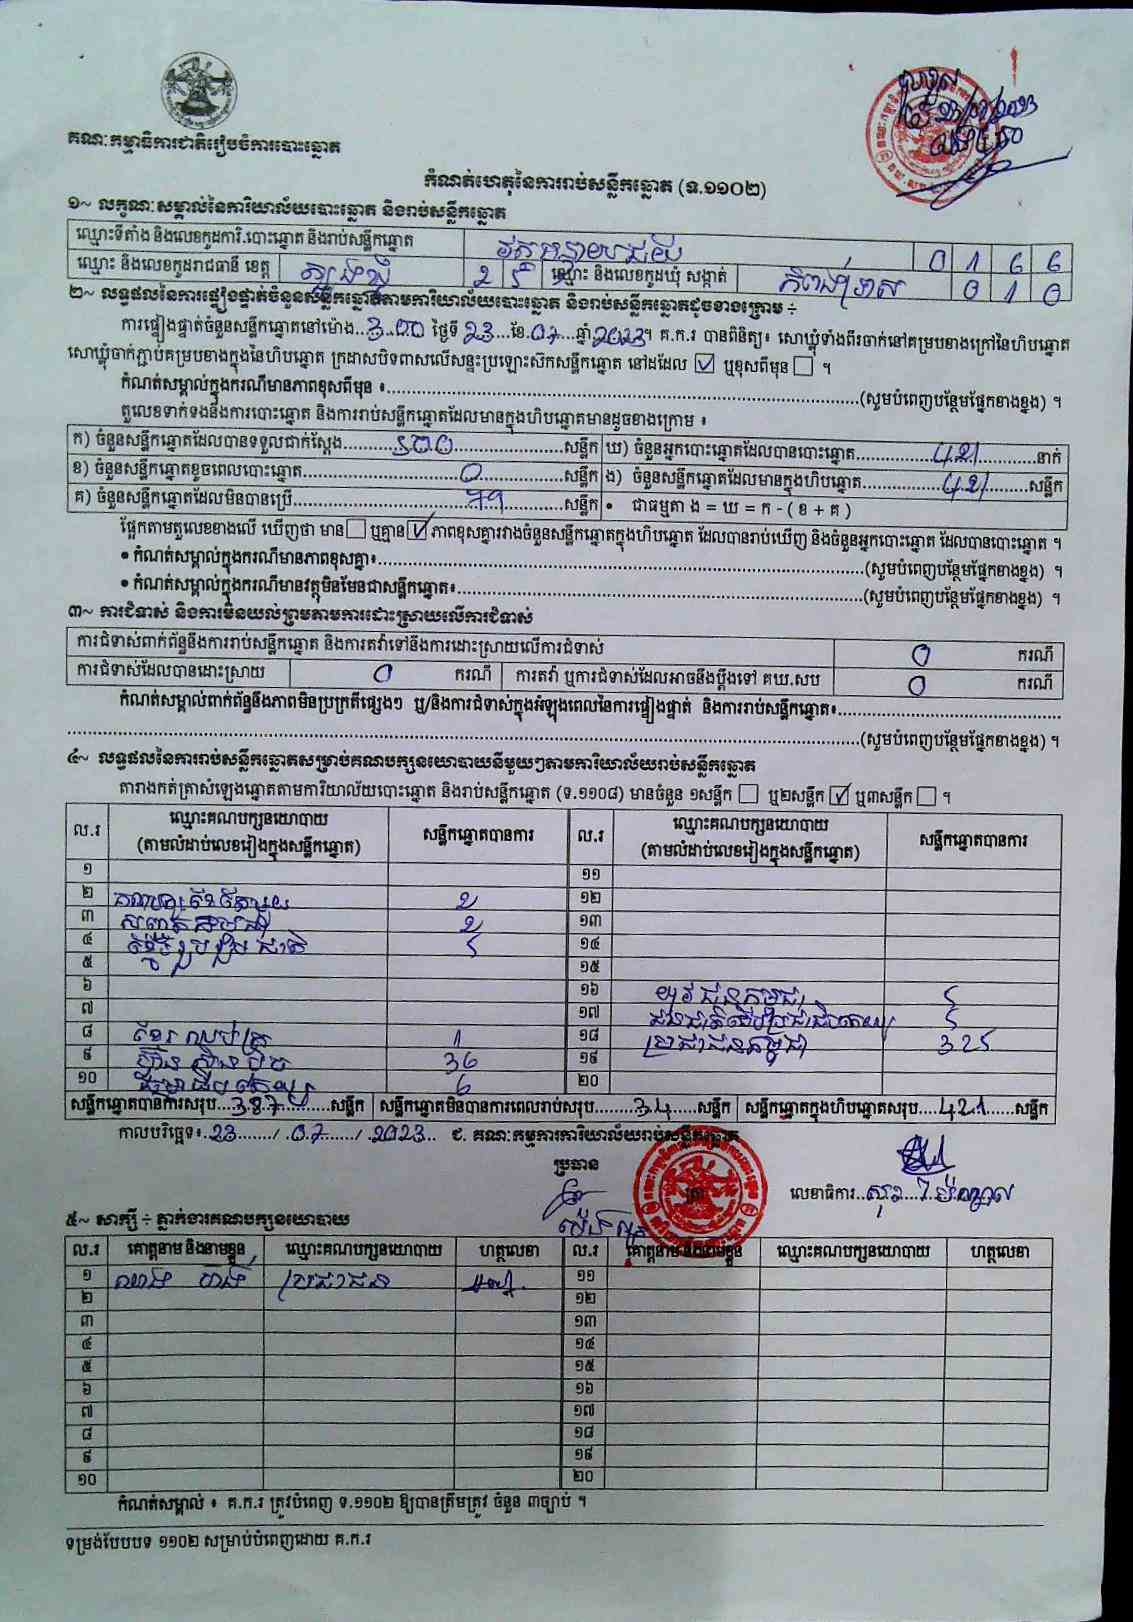 គណៈកម្មាធិការជាតិរៀបចំការបោះឆ្នោត
កំណត់ហេតុនៃការរាប់សន្លឹកឆ្នោត (ទ.១១០២)
១~ លក្ខណៈសម្គាល់នៃការិយាល័យបោះឆ្នោត និងរាប់សន្លឹកឆ្នោត
ឈ្មោះទីតាំង និងលេខកូដការិ.បោះឆ្នោត និងរាប់សន្លឹកឆ្នោត 0 1 6 6
ឈ្មោះ និងលេខកូដរាជធានី ខេត្ត ត្បូងឃ្មុំ 2 5 ឈ្មោះ និងលេខកូដឃុំ សង្កាត់ 0 1 0
២~ លទ្ធផលនៃការផ្ទៀងផ្ទាត់ចំនួនសន្លឹកឆ្នោតតាមការិយាល័យបោះឆ្នោត និងរាប់សន្លឹកឆ្នោតដូចខាងក្រោម ÷
ការផ្ទៀងផ្ទាត់ចំនួនសន្លឹកឆ្នោតនៅម៉ោង..3:00 ថ្ងៃទី 23 ...ខែ.07....ឆ្នាំ 2023។ គ.ក.រ បានពិនិត្យ៖ សោឃ្លុំទាំងពីរចាក់នៅគម្របខាងក្រៅនៃហិបឆ្នោត
សោឃ្លុំចាក់ភ្ជាប់គម្របខាងក្នុងនៃហិបឆ្នោត ក្រដាសបិទពាសលើសន្ទះប្រឡោះស៊កសន្លឹកឆ្នោត នៅដដែល ☑ ឬខុសពីមុន ☐ ។
កំណត់សម្គាល់ក្នុងករណីមានភាពខុសពីមុន ៖..........(សូមបំពេញបន្ថែមផ្នែកខាងខ្នង) ។
តួលេខទាក់ទងនឹងការបោះឆ្នោត និងការរាប់សន្លឹកឆ្នោតដែលមានក្នុងហិបឆ្នោតមានដូចខាងក្រោម ៖
ក) ចំនួនសន្លឹកឆ្នោតដែលបានទទួលជាក់ស្តែង..........500..........សន្លឹក ឃ) ចំនួនអ្នកបោះឆ្នោតដែលបានបោះឆ្នោត..........421..........នាក់
ខ) ចំនួនសន្លឹកឆ្នោតខូចពេលបោះឆ្នោត..........0..........សន្លឹក ង) ចំនួនសន្លឹកឆ្នោតដែលមានក្នុងហិបឆ្នោត..........421..........សន្លឹក
គ) ចំនួនសន្លឹកឆ្នោតដែលមិនបានប្រើ..........79..........សន្លឹក • ជាធម្មតា ង = ឃ = ក - ( ខ + គ )
ផ្អែកតាមតួលេខខាងលើ ឃើញថា មាន ☐ ឬគ្មាន ☑ ភាពខុសគ្នារវាងចំនួនសន្លឹកឆ្នោតក្នុងហិបឆ្នោត ដែលបានរាប់ឃើញ និងចំនួនអ្នកបោះឆ្នោត ដែលបានបោះឆ្នោត ។
• កំណត់សម្គាល់ក្នុងករណីមានភាពខុសគ្នា៖..........(សូមបំពេញបន្ថែមផ្នែកខាងខ្នង) ។
• កំណត់សម្គាល់ក្នុងករណីមានវត្ថុមិនមែនជាសន្លឹកឆ្នោត៖..........(សូមបំពេញបន្ថែមផ្នែកខាងខ្នង) ។
៣~ ការជំទាស់ និងការមិនយល់ព្រមតាមការដោះស្រាយលើការជំទាស់
ការជំទាស់ពាក់ព័ន្ធនឹងការរាប់សន្លឹកឆ្នោត និងការតវ៉ាទៅនឹងការដោះស្រាយលើការជំទាស់ 0 ករណី
ការជំទាស់ដែលបានដោះស្រាយ 0 ករណី ការតវ៉ា ឬការជំទាស់ដែលអាចនឹងប្តឹងទៅ គឃ.សប 0 ករណី
កំណត់សម្គាល់ពាក់ព័ន្ធនឹងភាពមិនប្រក្រតីផ្សេងៗ ឬ/និងការជំទាស់ក្នុងអំឡុងពេលនៃការផ្ទៀងផ្ទាត់ និងការរាប់សន្លឹកឆ្នោត៖..........
..........(សូមបំពេញបន្ថែមផ្នែកខាងខ្នង) ។
៤~ លទ្ធផលនៃការរាប់សន្លឹកឆ្នោតសម្រាប់គណបក្សនយោបាយនីមួយៗតាមការិយាល័យរាប់សន្លឹកឆ្នោត
តារាងកត់ត្រាសំឡេងឆ្នោតតាមការិយាល័យបោះឆ្នោត និងរាប់សន្លឹកឆ្នោត (ទ.១១០៨) មានចំនួន ១សន្លឹក ☐ ឬ២សន្លឹក ☑ ឬ៣សន្លឹក ☐ ។
ល.រ ឈ្មោះគណបក្សនយោបាយ (តាមលំដាប់លេខរៀងក្នុងសន្លឹកឆ្នោត) សន្លឹកឆ្នោតបានការ ល.រ ឈ្មោះគណបក្សនយោបាយ (តាមលំដាប់លេខរៀងក្នុងសន្លឹកឆ្នោត) សន្លឹកឆ្នោតបានការ
១ ១១
២ 2 ១២
៣ 2 ១៣
៤ ខ្មែររួបរួមជាតិ 5 ១៤
៥ ១៥
៦ ១៦ យុវជនកម្ពុជា 5
៧ ១៧ 5
៨ 1 ១៨ ប្រជាជនកម្ពុជា 325
៩ ហ៊្វុនស៊ិនប៉ិច 36 ១៩
១០ 6 ២០
សន្លឹកឆ្នោតបានការសរុប...387..........សន្លឹក សន្លឹកឆ្នោតមិនបានការពេលរាប់សរុប........34......សន្លឹក សន្លឹកឆ្នោតក្នុងហិបឆ្នោតសរុប....421......សន្លឹក
កាលបរិច្ឆេទ៖..23......./.07....../..2023.. ជ. គណៈកម្មការការិយាល័យរាប់សន្លឹកឆ្នោត
ប្រធាន
លេខាធិការ
៥~ សាក្សី ÷ ភ្នាក់ងារគណបក្សនយោបាយ
ល.រ គោត្តនាម និងនាមខ្លួន ឈ្មោះគណបក្សនយោបាយ ហត្ថលេខា ល.រ គោត្តនាម និងនាមខ្លួន ឈ្មោះគណបក្សនយោបាយ ហត្ថលេខា
១ ប្រជាជន ១១
២ ១២
៣ ១៣
៤ ១៤
៥ ១៥
៦ ១៦
៧ ១៧
៨ ១៨
៩ ១៩
១០ ២០
កំណត់សម្គាល់ ៖ គ.ក.រ ត្រូវបំពេញ ទ.១១០២ ឱ្យបានត្រឹមត្រូវ ចំនួន ៣ច្បាប់ ។
ទម្រង់បែបបទ ១១០២ សម្រាប់បំពេញដោយ គ.ក.រ